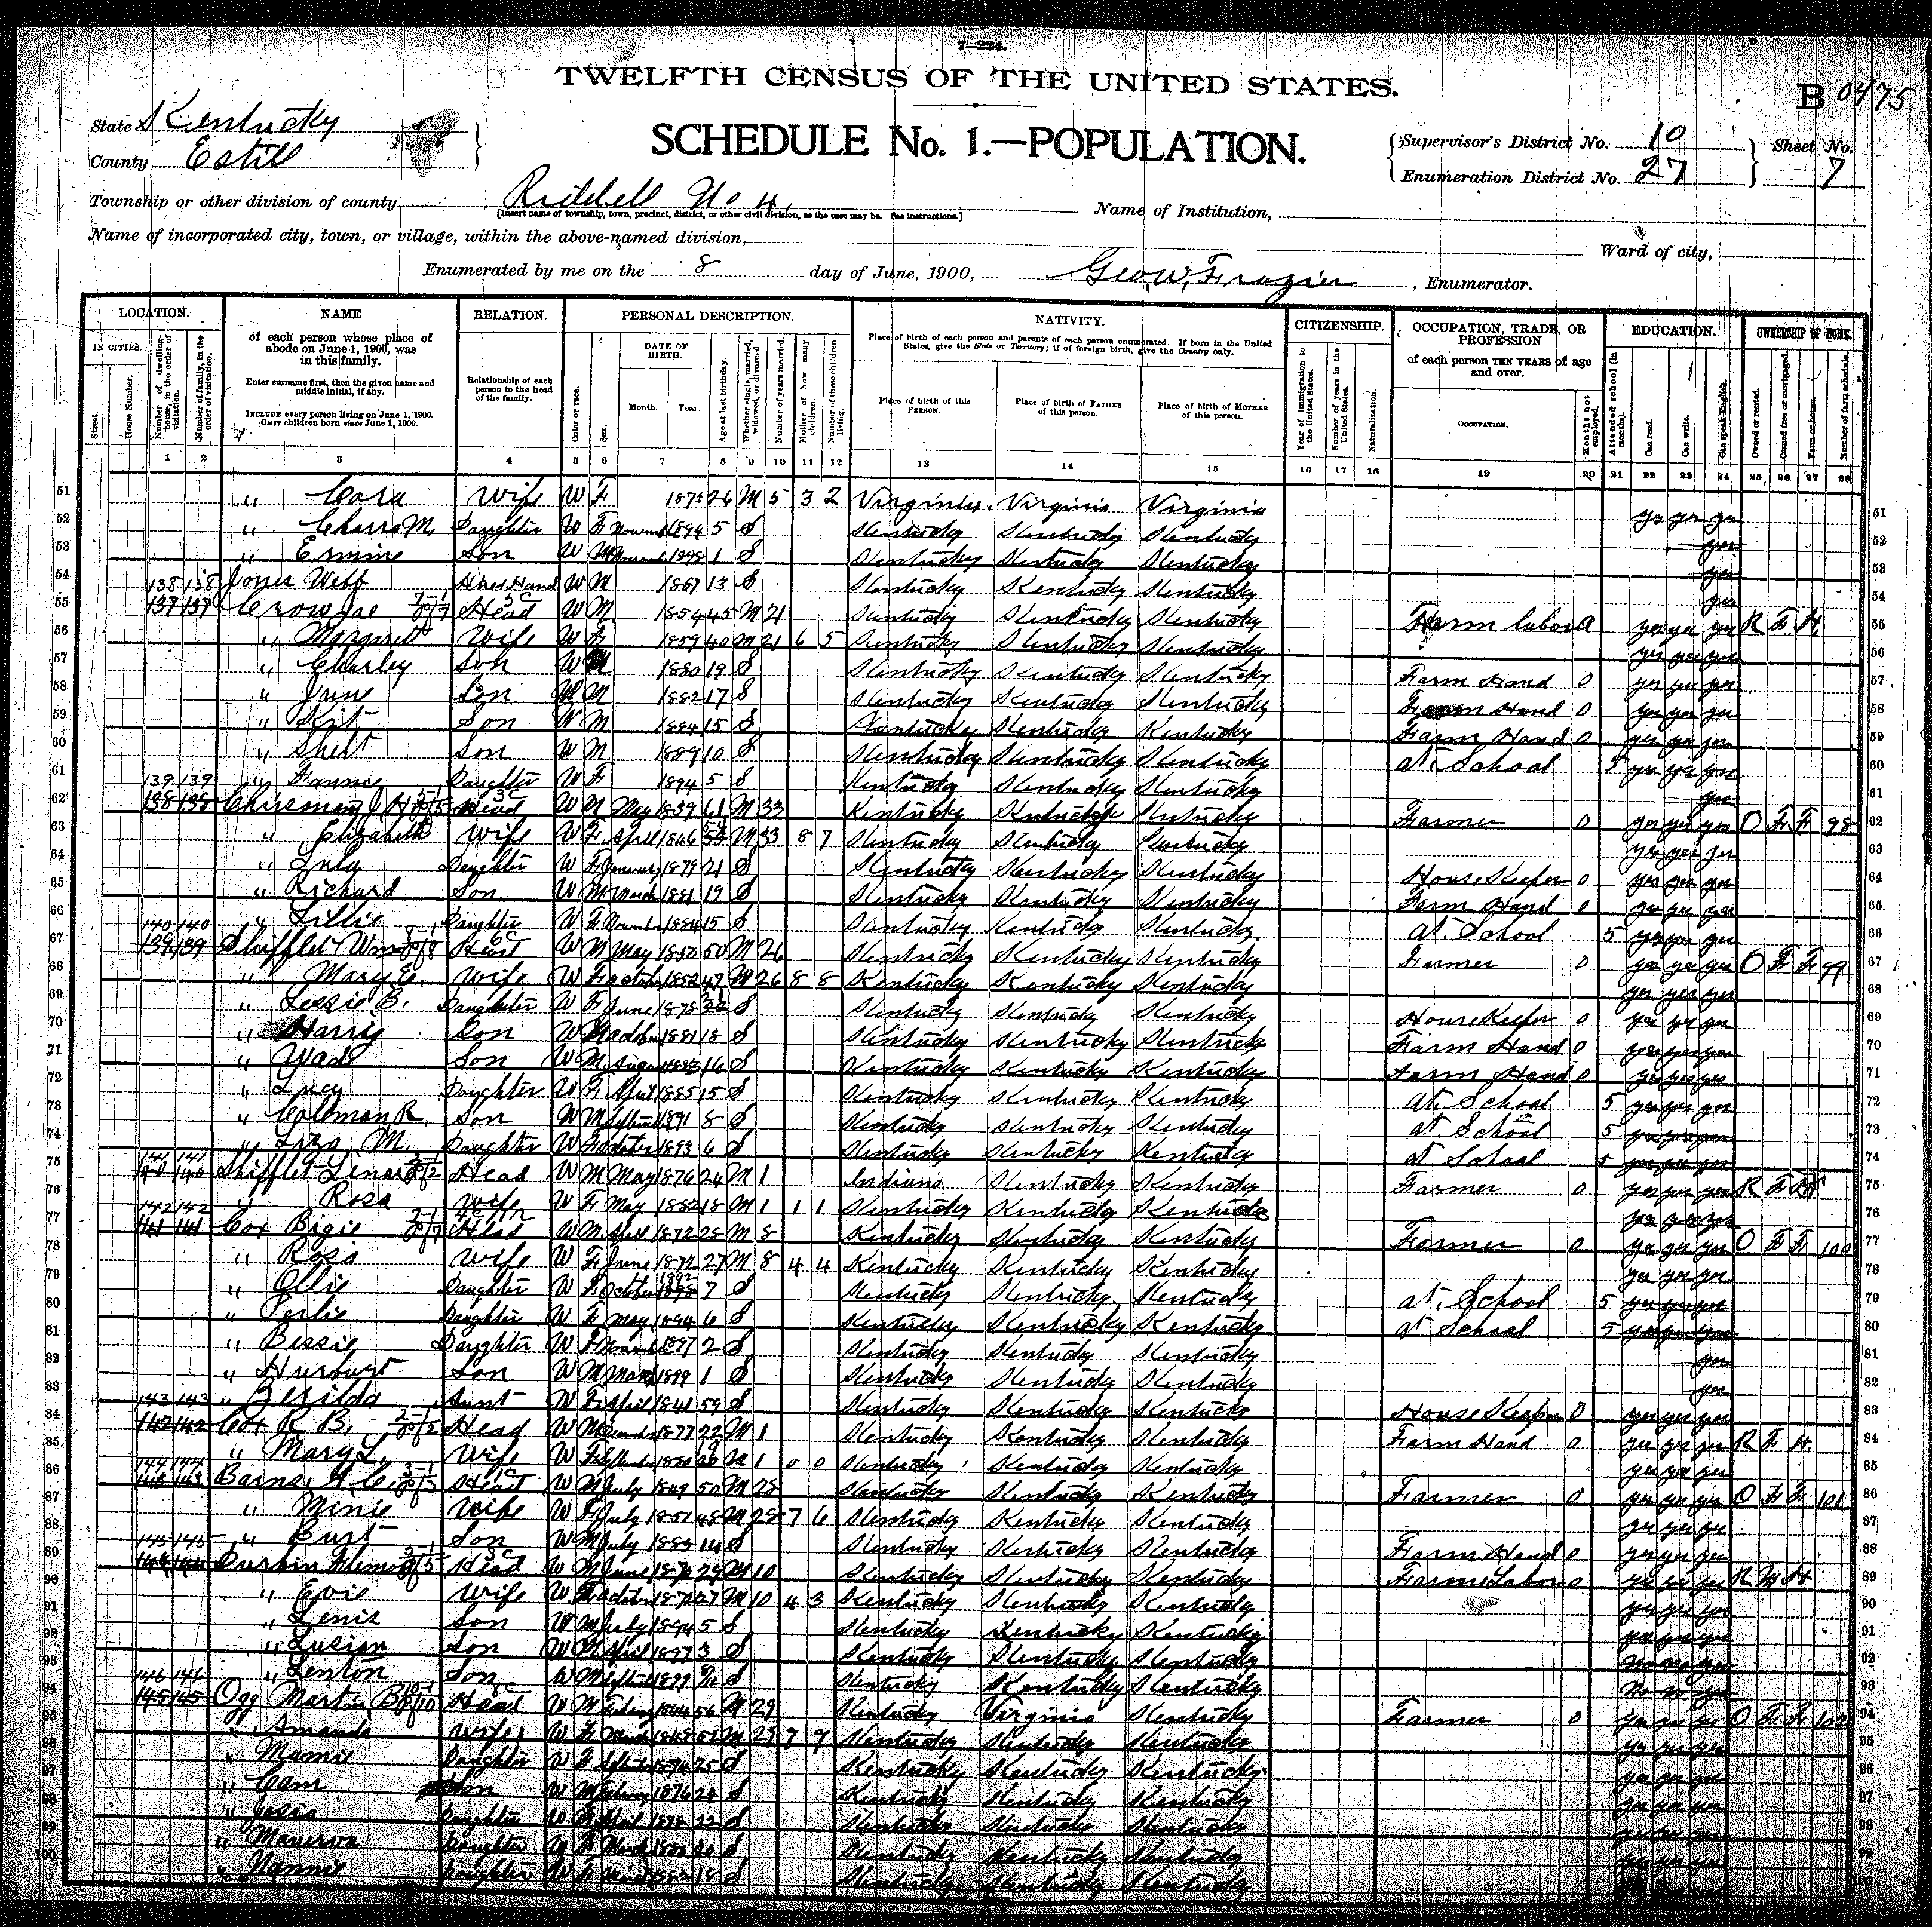 7—224.
TWELFTH CENSUS OF THE UNITED STATES.
B 0475
State Kentucky
County Estill
SCHEDULE No. 1.—POPULATION.
Supervisor's District No. 10
Enumeration District No. 27
Sheet No. 7
Township or other division of county Riddell No 4.
[Insert name of township, town, precinct, district, or other civil division, as the case may be. See instructions.]
Name of Institution,
Name of incorporated city, town, or village, within the above-named division,
Ward of city,
Enumerated by me on the 8 day of June, 1900, Geo. W. Frazier, Enumerator.
LOCATION. NAME RELATION. PERSONAL DESCRIPTION. NATIVITY. CITIZENSHIP. OCCUPATION, TRADE, OR PROFESSION EDUCATION. OWNERSHIP OF HOME.
IN CITIES. Street. House Number. Number of dwelling-house, in the order of visitation. Number of family, in the order of visitation.
of each person whose place of abode on June 1, 1900, was in this family.
Enter surname first, then the given name and middle initial, if any.
INCLUDE every person living on June 1, 1900. OMIT children born since June 1, 1900.
Relationship of each person to the head of the family.
Color or race. Sex. DATE OF BIRTH. Month. Year. Age at last birthday. Whether single, married, widowed, or divorced. Number of years married. Mother of how many children. Number of these children living.
Place of birth of each person and parents of each person enumerated. If born in the United States, give the State or Territory; if of foreign birth, give the Country only.
Place of birth of this PERSON. Place of birth of FATHER of this person. Place of birth of MOTHER of this person.
Year of immigration to the United States. Number of years in the United States. Naturalization.
of each person TEN YEARS of age and over.
OCCUPATION. Months not employed.
Attended school (in months). Can read. Can write. Can speak English.
Owned or rented. Owned free or mortgaged. Farm or house. Number of farm schedule.
1 2 3 4 5 6 7 8 9 10 11 12 13 14 15 16 17 18 19 20 21 22 23 24 25 26 27 28
51 " Cora Wife W F 26 M 5 3 2 Virginia Virginia Virginia yes yes yes 51
52 " M. Daughter W F 1894 5 S Kentucky Kentucky Kentucky yes 52
53 " Ermine Son W M 1898 1 S Kentucky Kentucky Kentucky yes 53
54 Jones Webb Hired Hand W M 1887 13 S Kentucky Kentucky Kentucky yes 54
55 138 138 137 137 Crow Jae Head W M 1854 45 M 21 Kentucky Kentucky Kentucky Farm labor 0 yes yes yes R F H 55
56 " Margaret Wife W F 1859 40 M 21 6 5 Kentucky Kentucky Kentucky yes yes yes 56
57 " Charley Son W M 1880 19 S Kentucky Kentucky Kentucky Farm Hand 0 yes yes yes 57
58 " Son W M 1882 17 S Kentucky Kentucky Kentucky Farm Hand 0 yes yes yes 58
59 " Kit Son W M 1884 15 S Kentucky Kentucky Kentucky Farm Hand 0 yes yes yes 59
60 " Shelt Son W M 1889 10 S Kentucky Kentucky Kentucky at School 5 yes yes yes 60
61 " Fannie Daughter W F 1894 5 S Kentucky Kentucky Kentucky yes 61
62 139 139 138 138 Chrisman J H Head W M May 1839 61 M 33 Kentucky Kentucky Kentucky Farmer 0 yes yes yes O F F 98 62
63 " Elizabeth Wife W F April 1846 M 33 8 7 Kentucky Kentucky Kentucky yes yes yes 63
64 " Daughter W F January 1879 21 S Kentucky Kentucky Kentucky House Keeper 0 yes yes yes 64
65 " Richard Son W M March 1881 19 S Kentucky Kentucky Kentucky Farm Hand 0 yes yes yes 65
66 " Lillie Daughter W F November 1884 15 S Kentucky Kentucky Kentucky at School 5 yes yes yes 66
67 140 140 139 139 Shifflet Wm Head W M May 1850 50 M 26 Kentucky Kentucky Kentucky Farmer 0 yes yes yes O F F 99 67
68 " Mary E. Wife W F October 1852 47 M 26 8 8 Kentucky Kentucky Kentucky yes yes yes 68
69 " Lessie B. Daughter W F June 1878 S Kentucky Kentucky Kentucky House Keeper 0 yes yes yes 69
70 " Harry Son W M October 1881 18 S Kentucky Kentucky Kentucky Farm Hand 0 yes yes yes 70
71 " Wad Son W M August 1883 16 S Kentucky Kentucky Kentucky Farm Hand 0 yes yes yes 71
72 " Lucy Daughter W F April 1885 15 S Kentucky Kentucky Kentucky at School 5 yes yes yes 72
73 " Coleman R. Son W M 1891 8 S Kentucky Kentucky Kentucky at School 5 yes yes yes 73
74 " Liza M. Daughter W F October 1893 6 S Kentucky Kentucky Kentucky at School 5 yes yes yes 74
75 141 141 140 140 Shifflet Head W M May 1876 24 M 1 Indiana Kentucky Kentucky Farmer 0 yes yes yes R F 75
76 " Rosa Wife W F May 1882 18 M 1 1 1 Kentucky Kentucky Kentucky yes yes yes 76
77 142 142 141 141 Cox Head W M April 1872 28 M 8 Kentucky Kentucky Kentucky Farmer 0 yes yes yes O F F 100 77
78 " Rosa Wife W F June 1872 27 M 8 4 4 Kentucky Kentucky Kentucky yes yes yes 78
79 " Ollie Daughter W F October 1892 7 S Kentucky Kentucky Kentucky at School 5 yes yes yes 79
80 " Perlie Daughter W F May 1894 6 S Kentucky Kentucky Kentucky at School 5 yes yes yes 80
81 " Bessie Daughter W F November 1897 2 S Kentucky Kentucky Kentucky yes 81
82 " Son W M March 1899 1 S Kentucky Kentucky Kentucky yes 82
83 " Aunt W F April 1841 59 S Kentucky Kentucky Kentucky House Keeper 0 yes yes yes 83
84 143 143 142 142 Cox R B. Head W M December 1877 22 M 1 Kentucky Kentucky Kentucky Farm Hand 0 yes yes yes R F H 84
85 " Mary L. Wife W F September 1880 M 1 0 0 Kentucky Kentucky Kentucky yes yes yes 85
86 144 144 143 143 Barns Head W M July 1849 50 M 28 Kentucky Kentucky Kentucky Farmer 0 yes yes yes O F F 101 86
87 " Minie Wife W F July 1851 48 M 28 7 6 Kentucky Kentucky Kentucky yes yes yes 87
88 " Burt Son W M July 14 S Kentucky Kentucky Kentucky Farm Hand 0 yes yes yes 88
89 145 145 144 144 Durbin Head W M June 1870 29 M 10 Kentucky Kentucky Kentucky Farm Labor 0 yes yes yes R M H 89
90 " Evie Wife W F October 27 M 10 4 3 Kentucky Kentucky Kentucky yes yes yes 90
91 " Lenis Son W M July 1894 5 S Kentucky Kentucky Kentucky yes yes yes 91
92 " Lusian Son W M April 1897 3 S Kentucky Kentucky Kentucky no no yes 92
93 " Lenton Son W M 1899 S Kentucky Kentucky Kentucky no no yes 93
94 146 146 145 145 Ogg Martin B Head W M 1844 56 M 29 Kentucky Virginia Kentucky Farmer 0 yes yes yes O F F 102 94
95 " Amanda Wife W F March M 29 9 9 Kentucky Kentucky Kentucky yes yes yes 95
96 " Mamie Daughter W F 1874 25 S Kentucky Kentucky Kentucky yes yes yes 96
97 " Cam Son W M 1876 24 S Kentucky Kentucky Kentucky yes yes yes 97
98 " Josie Daughter W F April 1878 22 S Kentucky Kentucky Kentucky yes yes yes 98
99 " Manerva Daughter W F March 1880 20 S Kentucky Kentucky Kentucky yes yes yes 99
100 " Nannie Daughter W F March 1882 18 S Kentucky Kentucky Kentucky 100